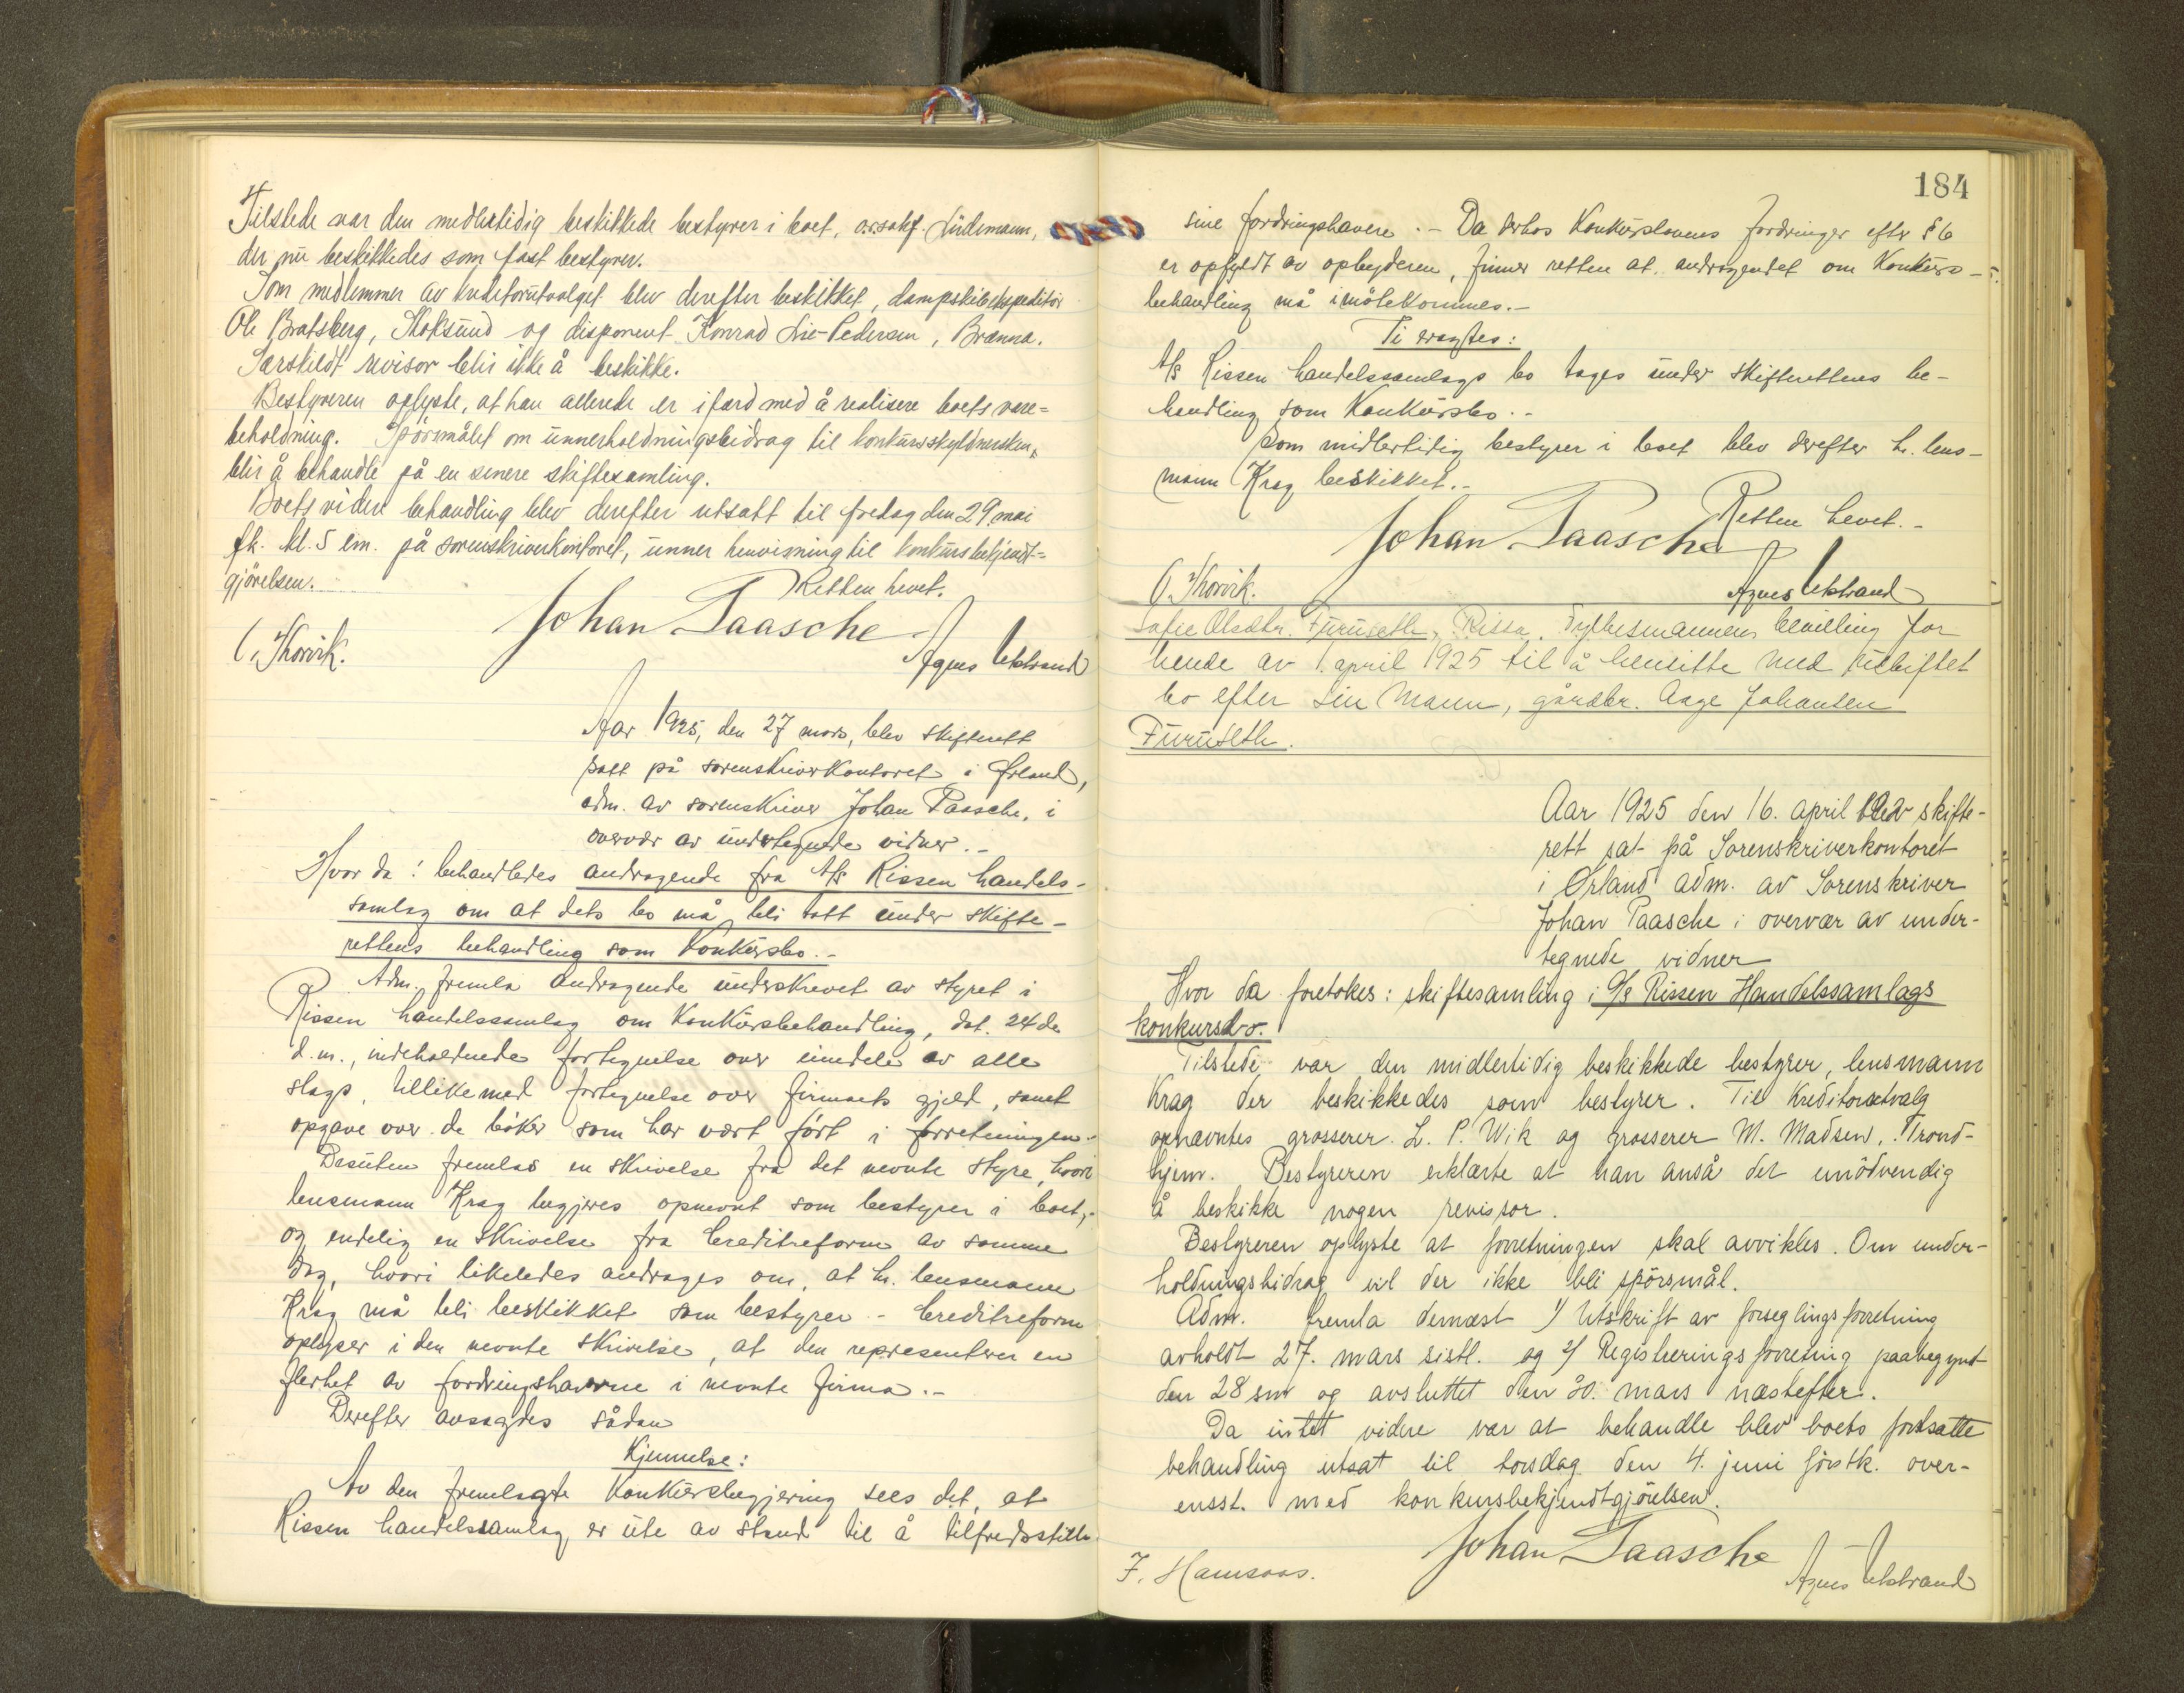 Tilstede var den medlertidig beskikkede bestyrer i boet, o.r.sakf. Lüdemann,
der nu beskikkedes som fast bestyrer.
Som medlemmer av kreditorutvalget blev derefter beskikket, dampskibekspeditør
Ole Bratsberg, Stoksund og disponent Konrad Lie-Pedersen, Brænna.
Særskildt revisor blir ikke å beskikke.
Bestyreren oplyste, at han allerede er ifærd med å realisere boets vare=
beholdning. Spörsmålet om unnerholdningsbidrag til konkursskyldnersken,
blir å behandle på en senere skiftesamling.
Boets videre behandling blev derefter utsatt til fredag den 29 mai
fk. kl. 5 em. på sorenskriverkontoret, unner henvisning til konkursbekjendt=
gjörelsen.
Retten hevet.
Johan Paasche
C. Skorvik.
Agnes Ukstrand
Aar 1925, den 27 mars, blev skifterett
satt på sorenskriverkontoret i Ørland,
adm. av sorenskriver Johan Paasche, i
overvær av undertegnede vidner.-
Hvor da: behandledes andragende fra A/s Rissen handels-
samlag om at dets bo må bli tatt under skifte-
rettens behandling som konkursbo.-
Adm. fremla andragende underskrevet av styret i
Rissen handelssamlag om konkursbehandling, dat. 24de
d.m., indeholdende fortegnelse over eiendele av alle
slags, tillikemed fortegnelse over firmaets gjeld, samt
opgave over de böker som har vært fört i forretningen.-
Desuten fremlas en skrivelse fra det nevnte styre, hvori
lensmann Krag begjæres opnevnt som bestyrer i boet,-
og endelig en skrivelse fra Creditreform av samme
dag, hvori likeledes andrages om, at hr. lensmann
Krag må bli beskikket som bestyrer.- Creditreform
oplyser i den nevnte skrivelse, at den representerer en
flerhet av fordringshaverne i nevnte firma.-
Derefter avsagdes sådan
Kjennelse:
Av den fremlagte konkursbegjering sees det, at
Rissen handelssamlag er ute av stand til å tilfredsstille
184
sine fordringshavere.- Da derhos konkurslovens fordringer efter § 6
er opfyldt av opbyderen, finner retten at andragendet om konkurs-
behandling må imötekommes.-
Ti eragtes:
A/s Rissen handelssamlags bo tages under skifterettens be-
handling som konkursbo.-
Som midlertidig bestyrer i boet blev derefter h. lens-
mann Krag beskikket.-
Retten hevet.-
Johan Paasche
C. Skorvik.
Agnes Ukstrand
Sofie Olsdtr. Furuseth, Rissa. Fylkesmannens bevilling for
hende av 1. april 1925 til å hensitte med uskiftet
bo efter sin mann, gårdbr. Aage Johansen
Furuseth.
Aar 1925 den 16. april blev skifte-
rett sat på Sorenskriverkontoret
i Ørland adm. av Sorenskriver
Johan Paasche i overvær av under-
tegnede vidner
Hvor da foretokes: skiftesamling i A/s Rissen Handelssamlags
konkursbo.
Tilstede var den midlertidig beskikkede bestyrer, lensmann
Krag der beskikkedes som bestyrer. Til Kreditorutvalg
opnævntes grosserer L. P. Wik og grosserer M. Madsen, Trond-
hjem. Bestyreren erklærte at han anså det unödvendig
å beskikke nogen revissor.
Bestyreren oplyste at forretningen skal avvikles. Om under-
holdningsbidrag vil der ikke bli spörsmål.
Adm. fremla dernæst 1/ Utskrift av forseglingsforretning
avholdt 27. mars sistl. og 2/ Registreringsforretning paabegynt
den 28 sm og avsluttet den 30. mars næstefter.
Da intet videre var at behandle blev boets fortsatte
behandling utsat til torsdag den 4. juni förstk. over-
ensst. med konkursbekjendtgjörelsen.
Johan Paasche
F. Hamsaas.
Agnes Ukstrand